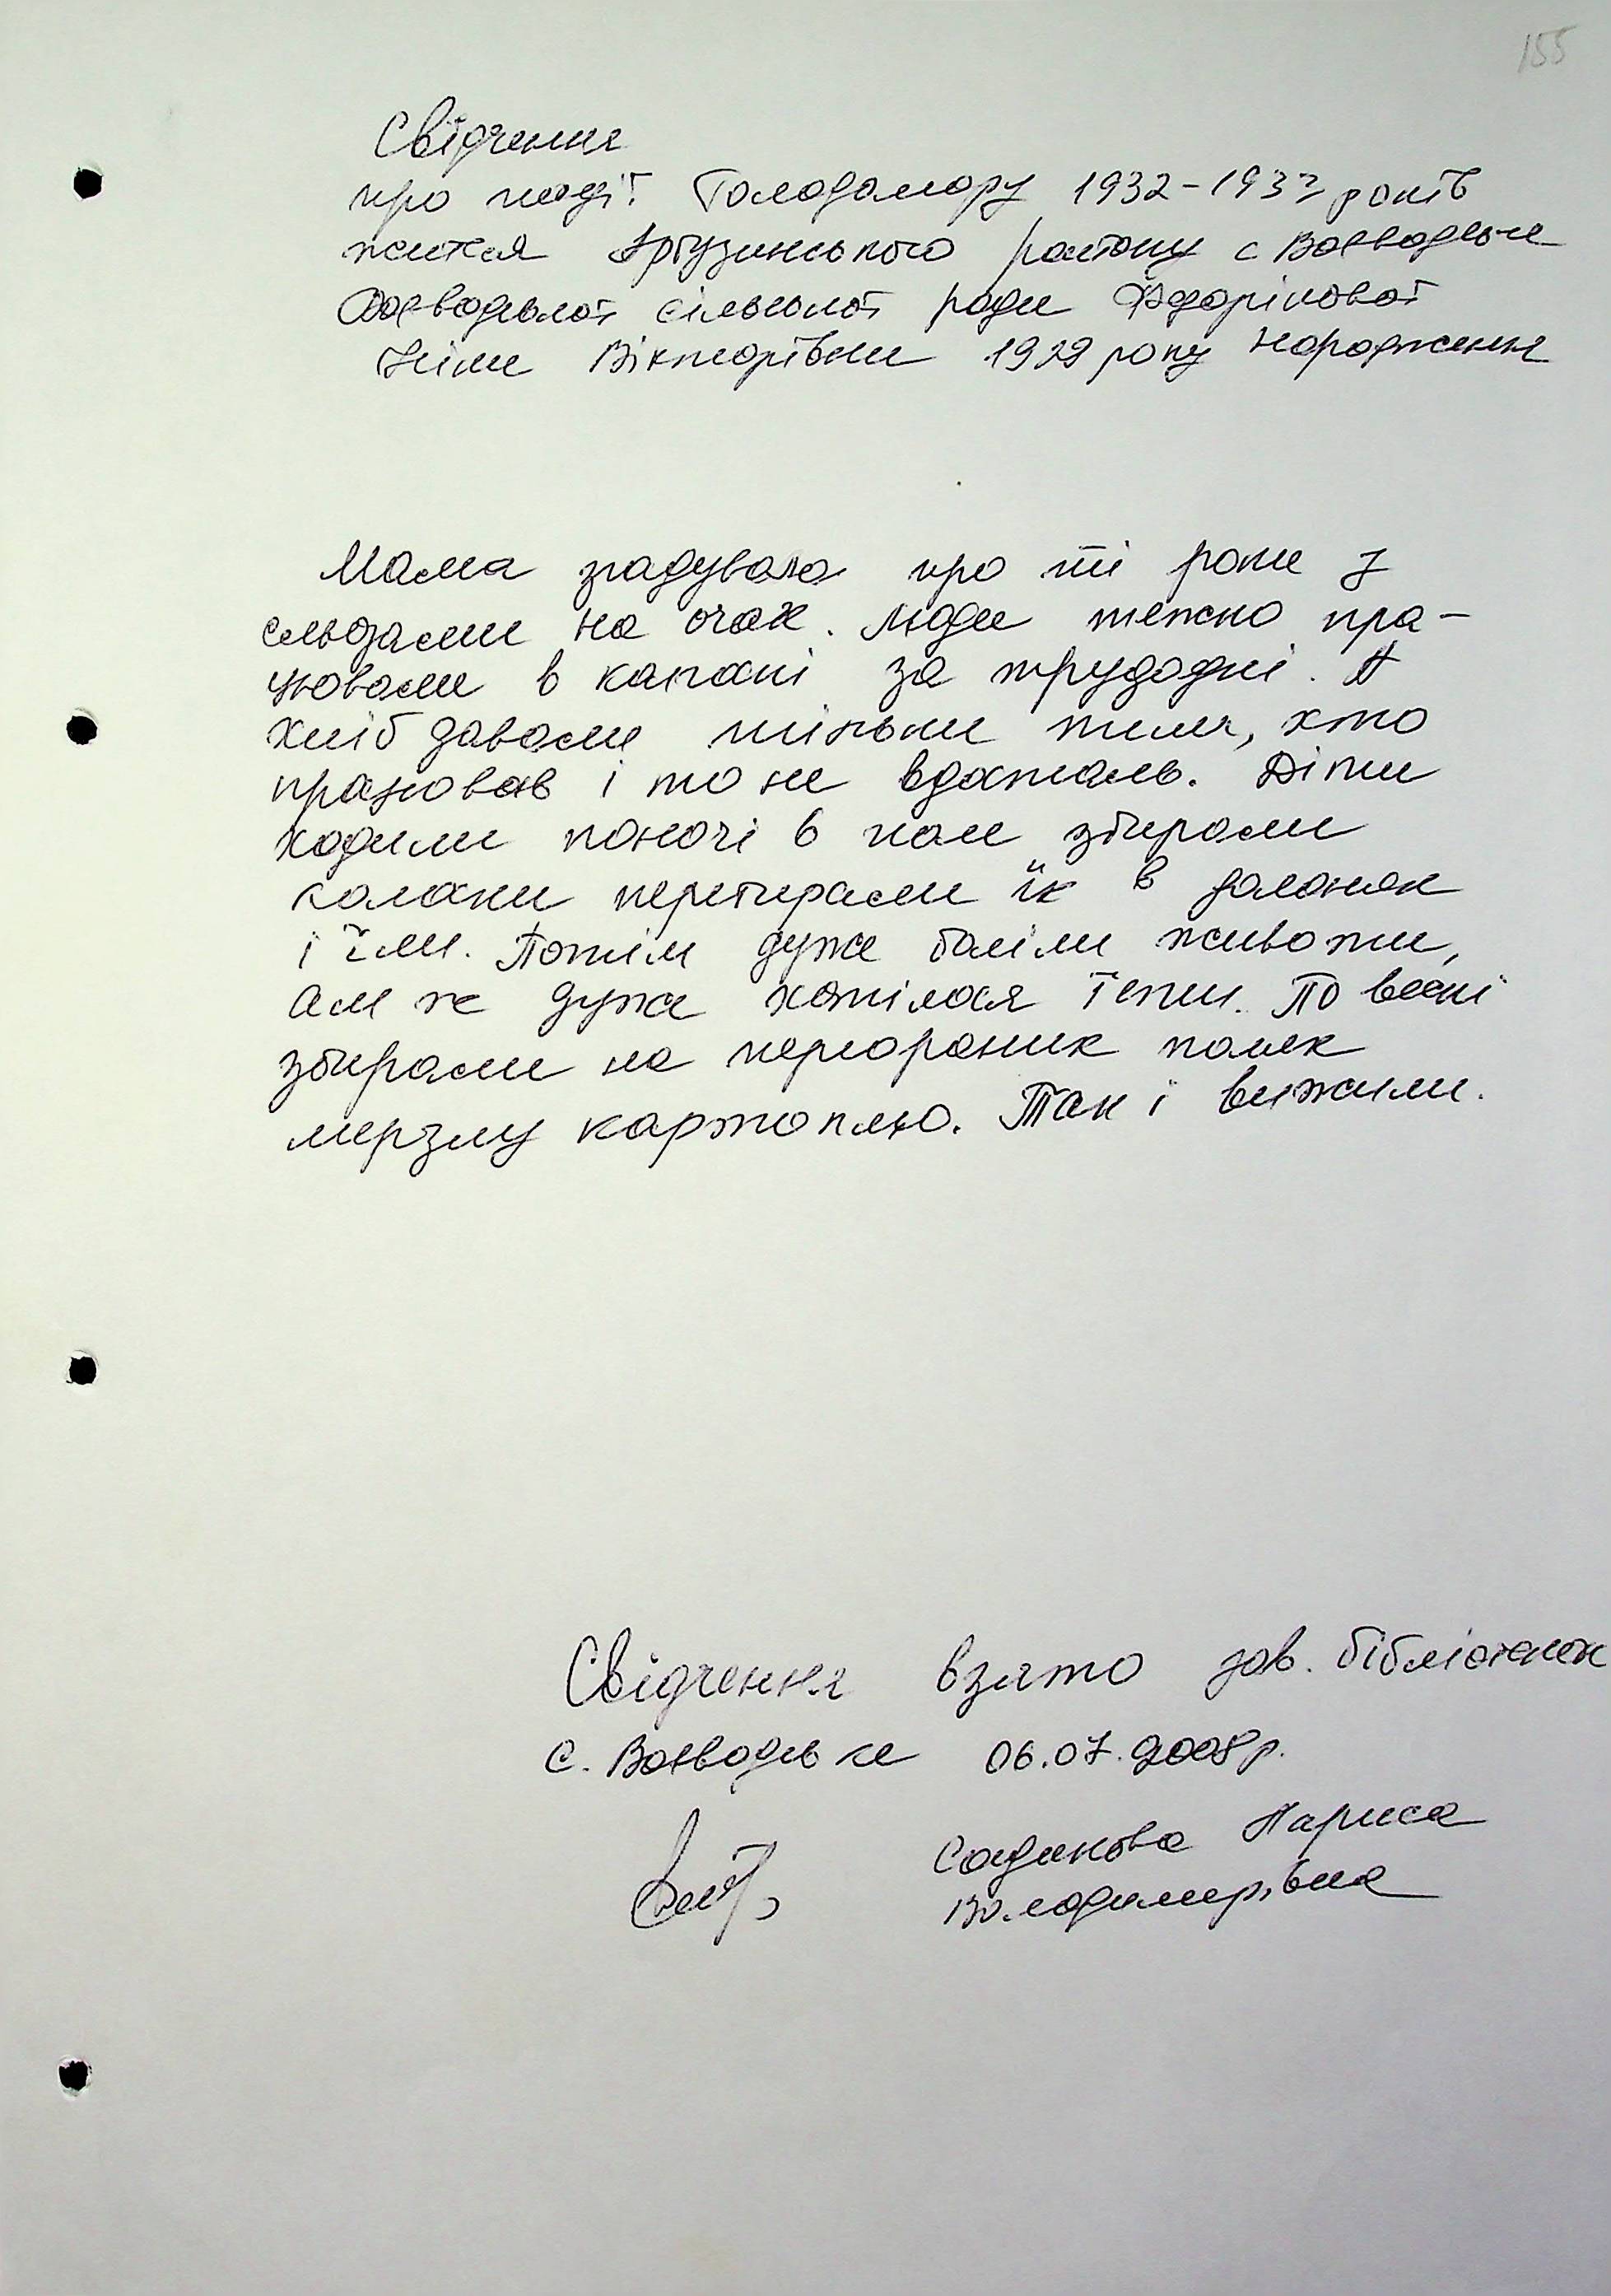 155
Свідчення
про події Голодомору 1932-1933 років
жителя Арбузинського району с Воєводське
Воєводської сільської ради Федорікової
Ніни Вікторівни 1929 року народження
Мама згадувала про ті роки з
сльозами на очах. Люди тяжко пра-
цювали в колхозі за трудодні. А
хліб давали тільки тим, хто
працював і то не вдосталь. Діти
ходили поночі в поле збирали
колоски перетирали їх в долонях
і їли. Потім дуже боліли животи,
але ж дуже хотілося їсти. По весні
збирали на переораних полях
мерзлу картоплю. Так і вижили.
Свідчення взято зав. бібліотекою
с. Воєводське 06.07.2008р.
Садикова Лариса
Володимирівна